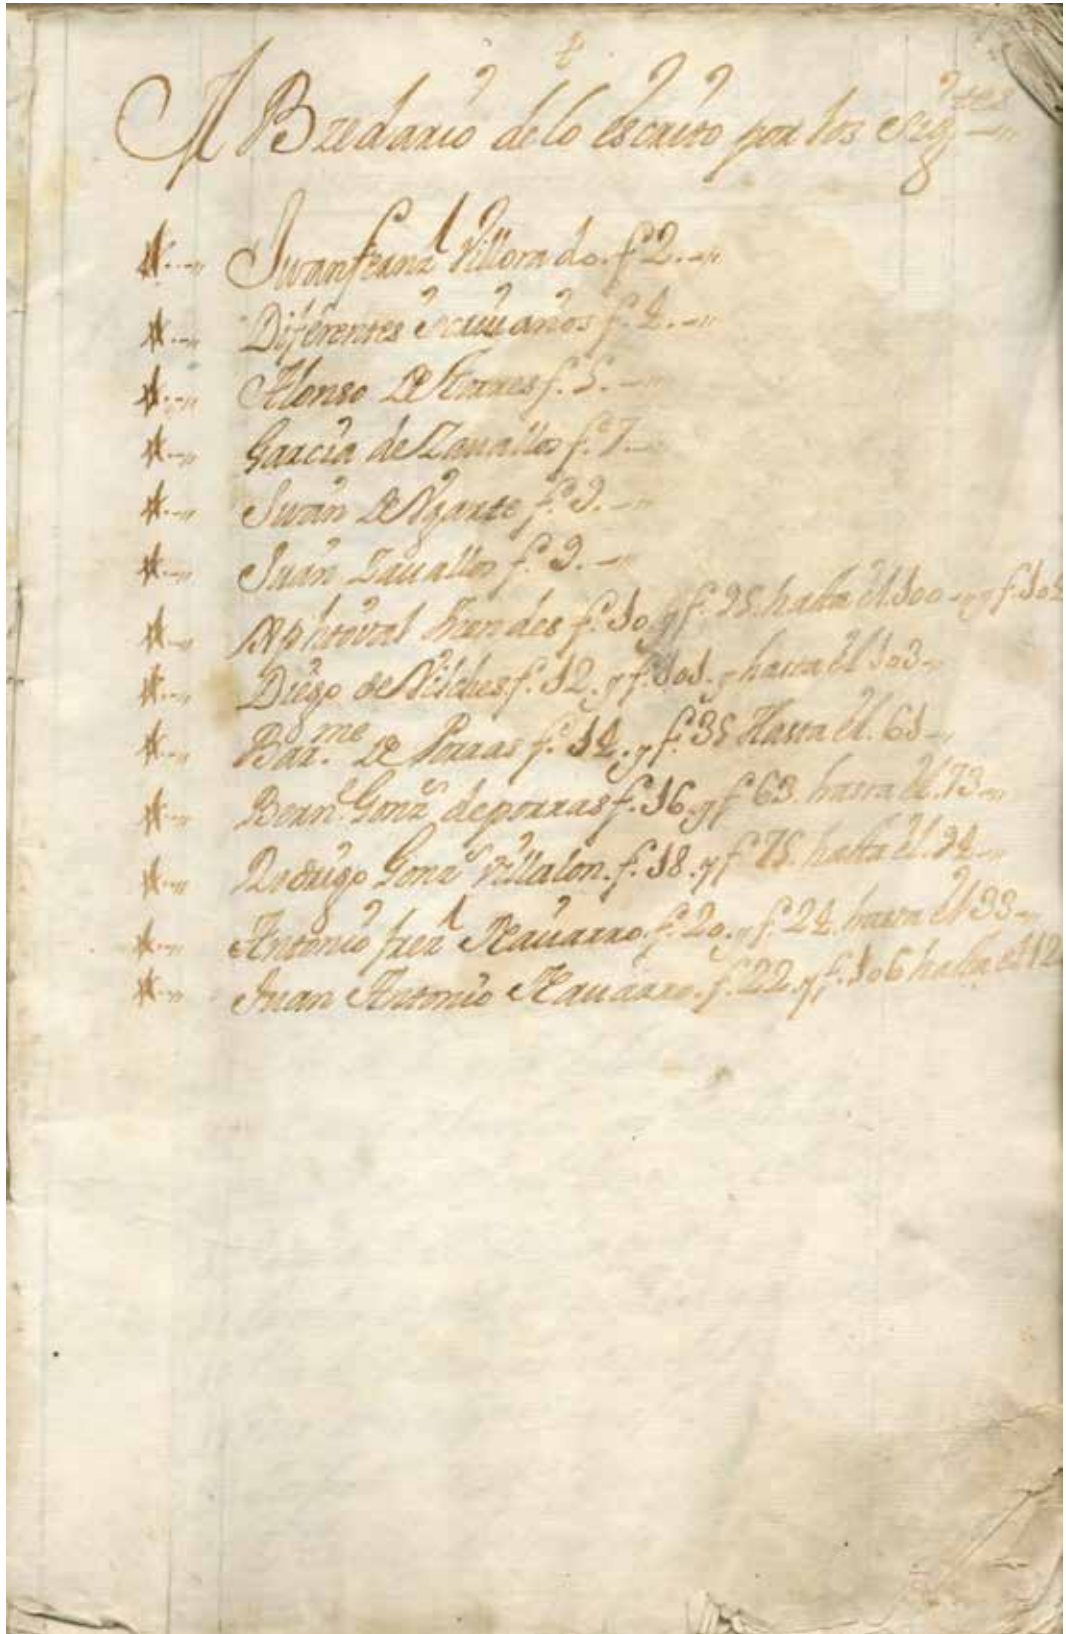 ABzedario de lo escrito por los Sigtes
Juan franz Villorado. fº 2.
Diferentes escriuanos fº 4.
Alonso de Torres fº 5.
Garcia de Zauallos fº 7.
Juan de Vgarte fº 9.
Juan Zauallos fº 9.
Xphtoual frz fº 10 y fº 95. hasta el 100 y fº
Diego de Vilches fº 12. y fº 101. y hasta el 103
Barme de Porras fº 14. y fº 35 Hasta el. 61
Bern Gonz de porras fº 16. y fº 63. hasta el. 73
Rodrigo Gonz Villalon. fº 18. y fº 75. hasta el. 94
Antonio frz Nauarro. fº 20. y fº 24. hasta el 33
Juan Antonio Nauarro. fº 22. y fº 106 hasta el